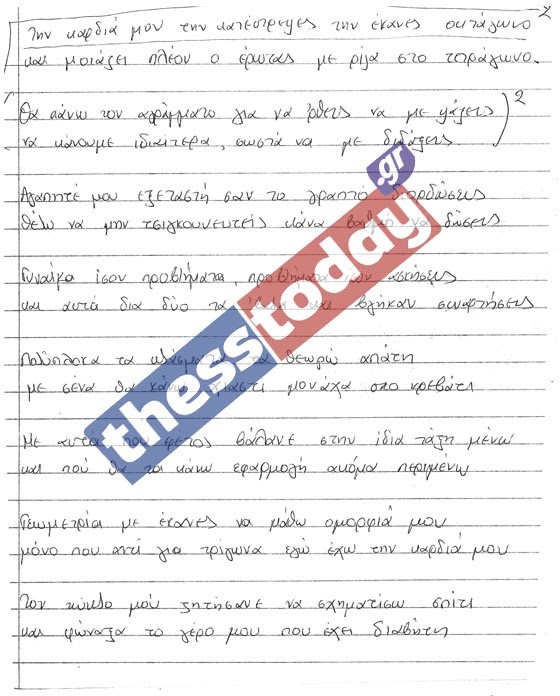 Την καρδιά μου την κατέστρεψες την έκανες οκτάγωνο
και μοιάζει πλέον ο έρωτας με ρίζα στο τετράγωνο.
2
Θα κάνω τον αγράμματο για να έρθεις να με ψάξεις
να κάνουμε ιδιαίτερα, σωστά να με διδάξεις.
2
Αγαπητέ μου εξεταστή σαν το γραπτό διορθώσεις
θέλω να μην τσιγκουνευτείς κάνα βαθμό να δώσεις
Γυναίκα ίσον προβλήματα, προβλήματα ίσον ασκήσεις
και αυτά δια δύο τα και βγήκαν συναρτήσεις
Πολύπλοκα τα κλάσματα τα θεωρώ απάτη
με σένα θα κάνω χιαστί μονάχα στο κρεβάτι
Με αυτά που φέτος βάλανε στην ίδια τάξη μένω
και πού θα τα κάνω εφαρμογή ακόμα περιμένω
Γεωμετρία με έκανες να μάθω ομορφιά μου
μόνο που αντί για τρίγωνα εγώ έχω την καρδιά μου
Τον κύκλο μού ζητήσανε να σχηματίσω σπίτι
και φώναξα το γέρο μου που έχει διαβήτη
thesstoday.gr